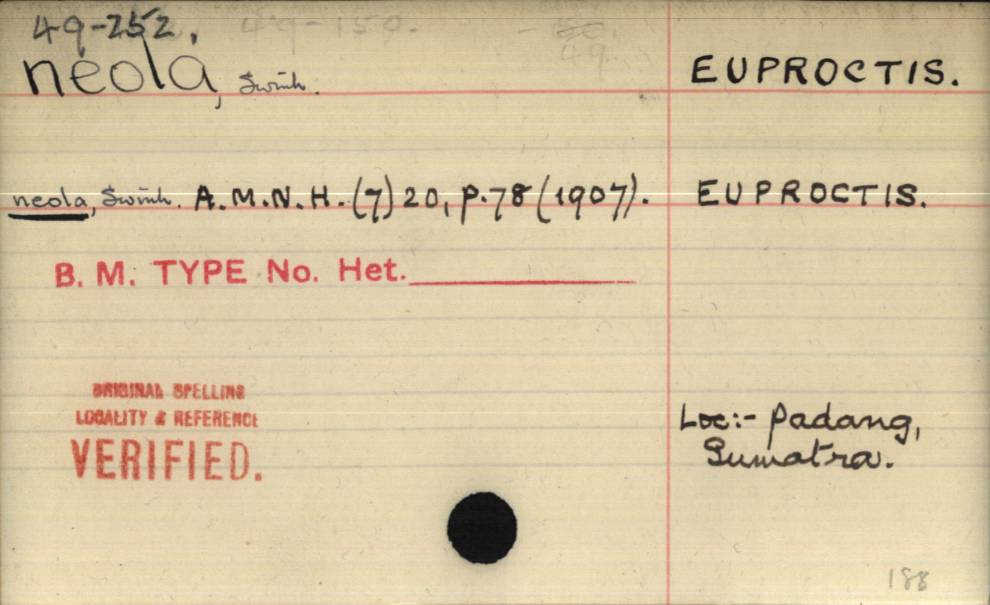 49-252. 49-150.
49
neola, Swinh. EUPROCTIS.
neola, Swinh. A.M.N.H. (7) 20, p.78 (1907). EUPROCTIS.
B. M. TYPE No. Het.
ORIGINAL SPELLING
LOCALITY & REFERENCE
VERIFIED.
Loc:- Padang,
Sumatra.
188